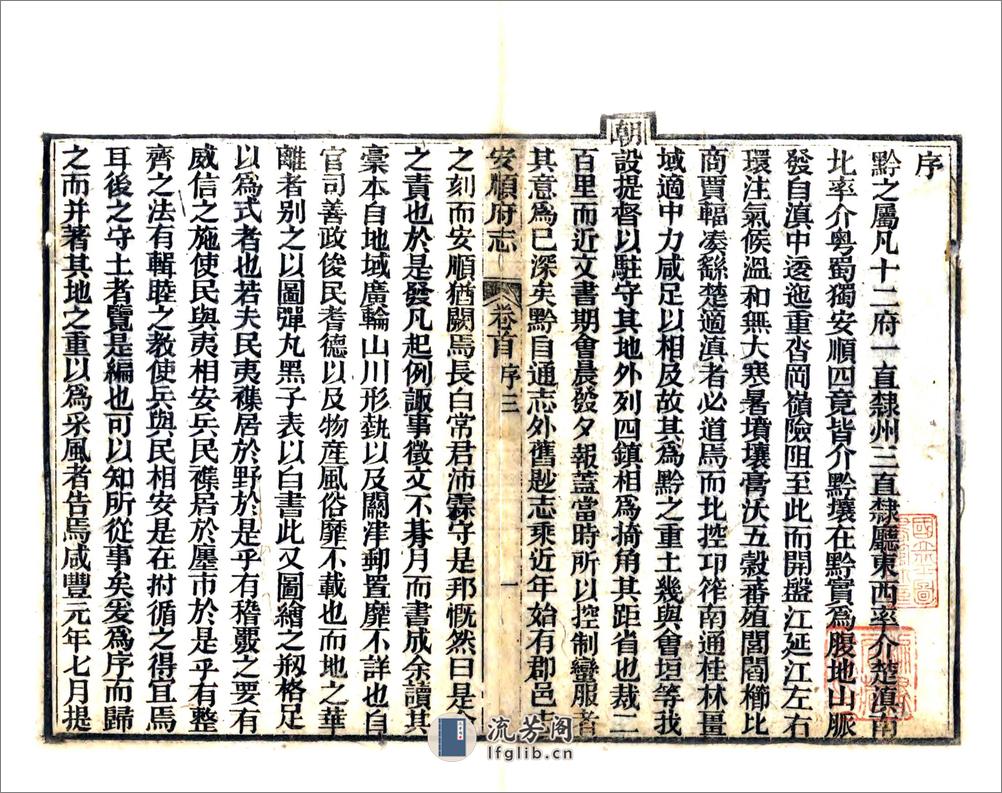 序
黔之屬凡十二府一直隸州三直隸廳東西率介楚滇南
北率介粵蜀獨安順四竟皆介黔壤在黔實爲腹地山脈
發自滇中逶迤重沓岡嶺險阻至此而開盤江延江左右
環注氣候溫和無大寒暑墳壤膏沃五穀蕃殖閭閻櫛比
商賈輻湊繇楚適滇者必道焉而北控卭筰南通桂林畺
域適中力咸足以相及故其爲黔之重土幾與會垣等我
朝
設提督以駐守其地外列四鎮相爲掎角其距省也裁二
百里而近文書期會晨發夕報蓋當時所以控制蠻服者
其意爲已深矣黔自通志外舊尟志乘近年始有郡邑志
安順府志
卷首
序三
一
之刻而安順猶闕焉長白常君沛霖守是邦慨然曰是
之責也於是發凡起例諏事徵文不朞月而書成余讀其
稾本自地域廣輪山川形埶以及關津郵置靡不詳也自
官司善政俊民耆德以及物產風俗靡不載也而地之華
離者别之以圖彈丸黑子表以白書此又圖繪之刱格足
以爲式者也若夫民夷襍居於野於是乎有稽覈之要有
威信之施使民與夷相安兵民襍居於廛市於是乎有整
齊之法有輯睦之教使兵與民相安是在拊循之得宜焉
耳後之守土者覽是編也可以知所從事矣爰爲序而歸
之而并著其地之重以爲采風者告焉咸豐元年七月提
流芳阁
lfglib.cn